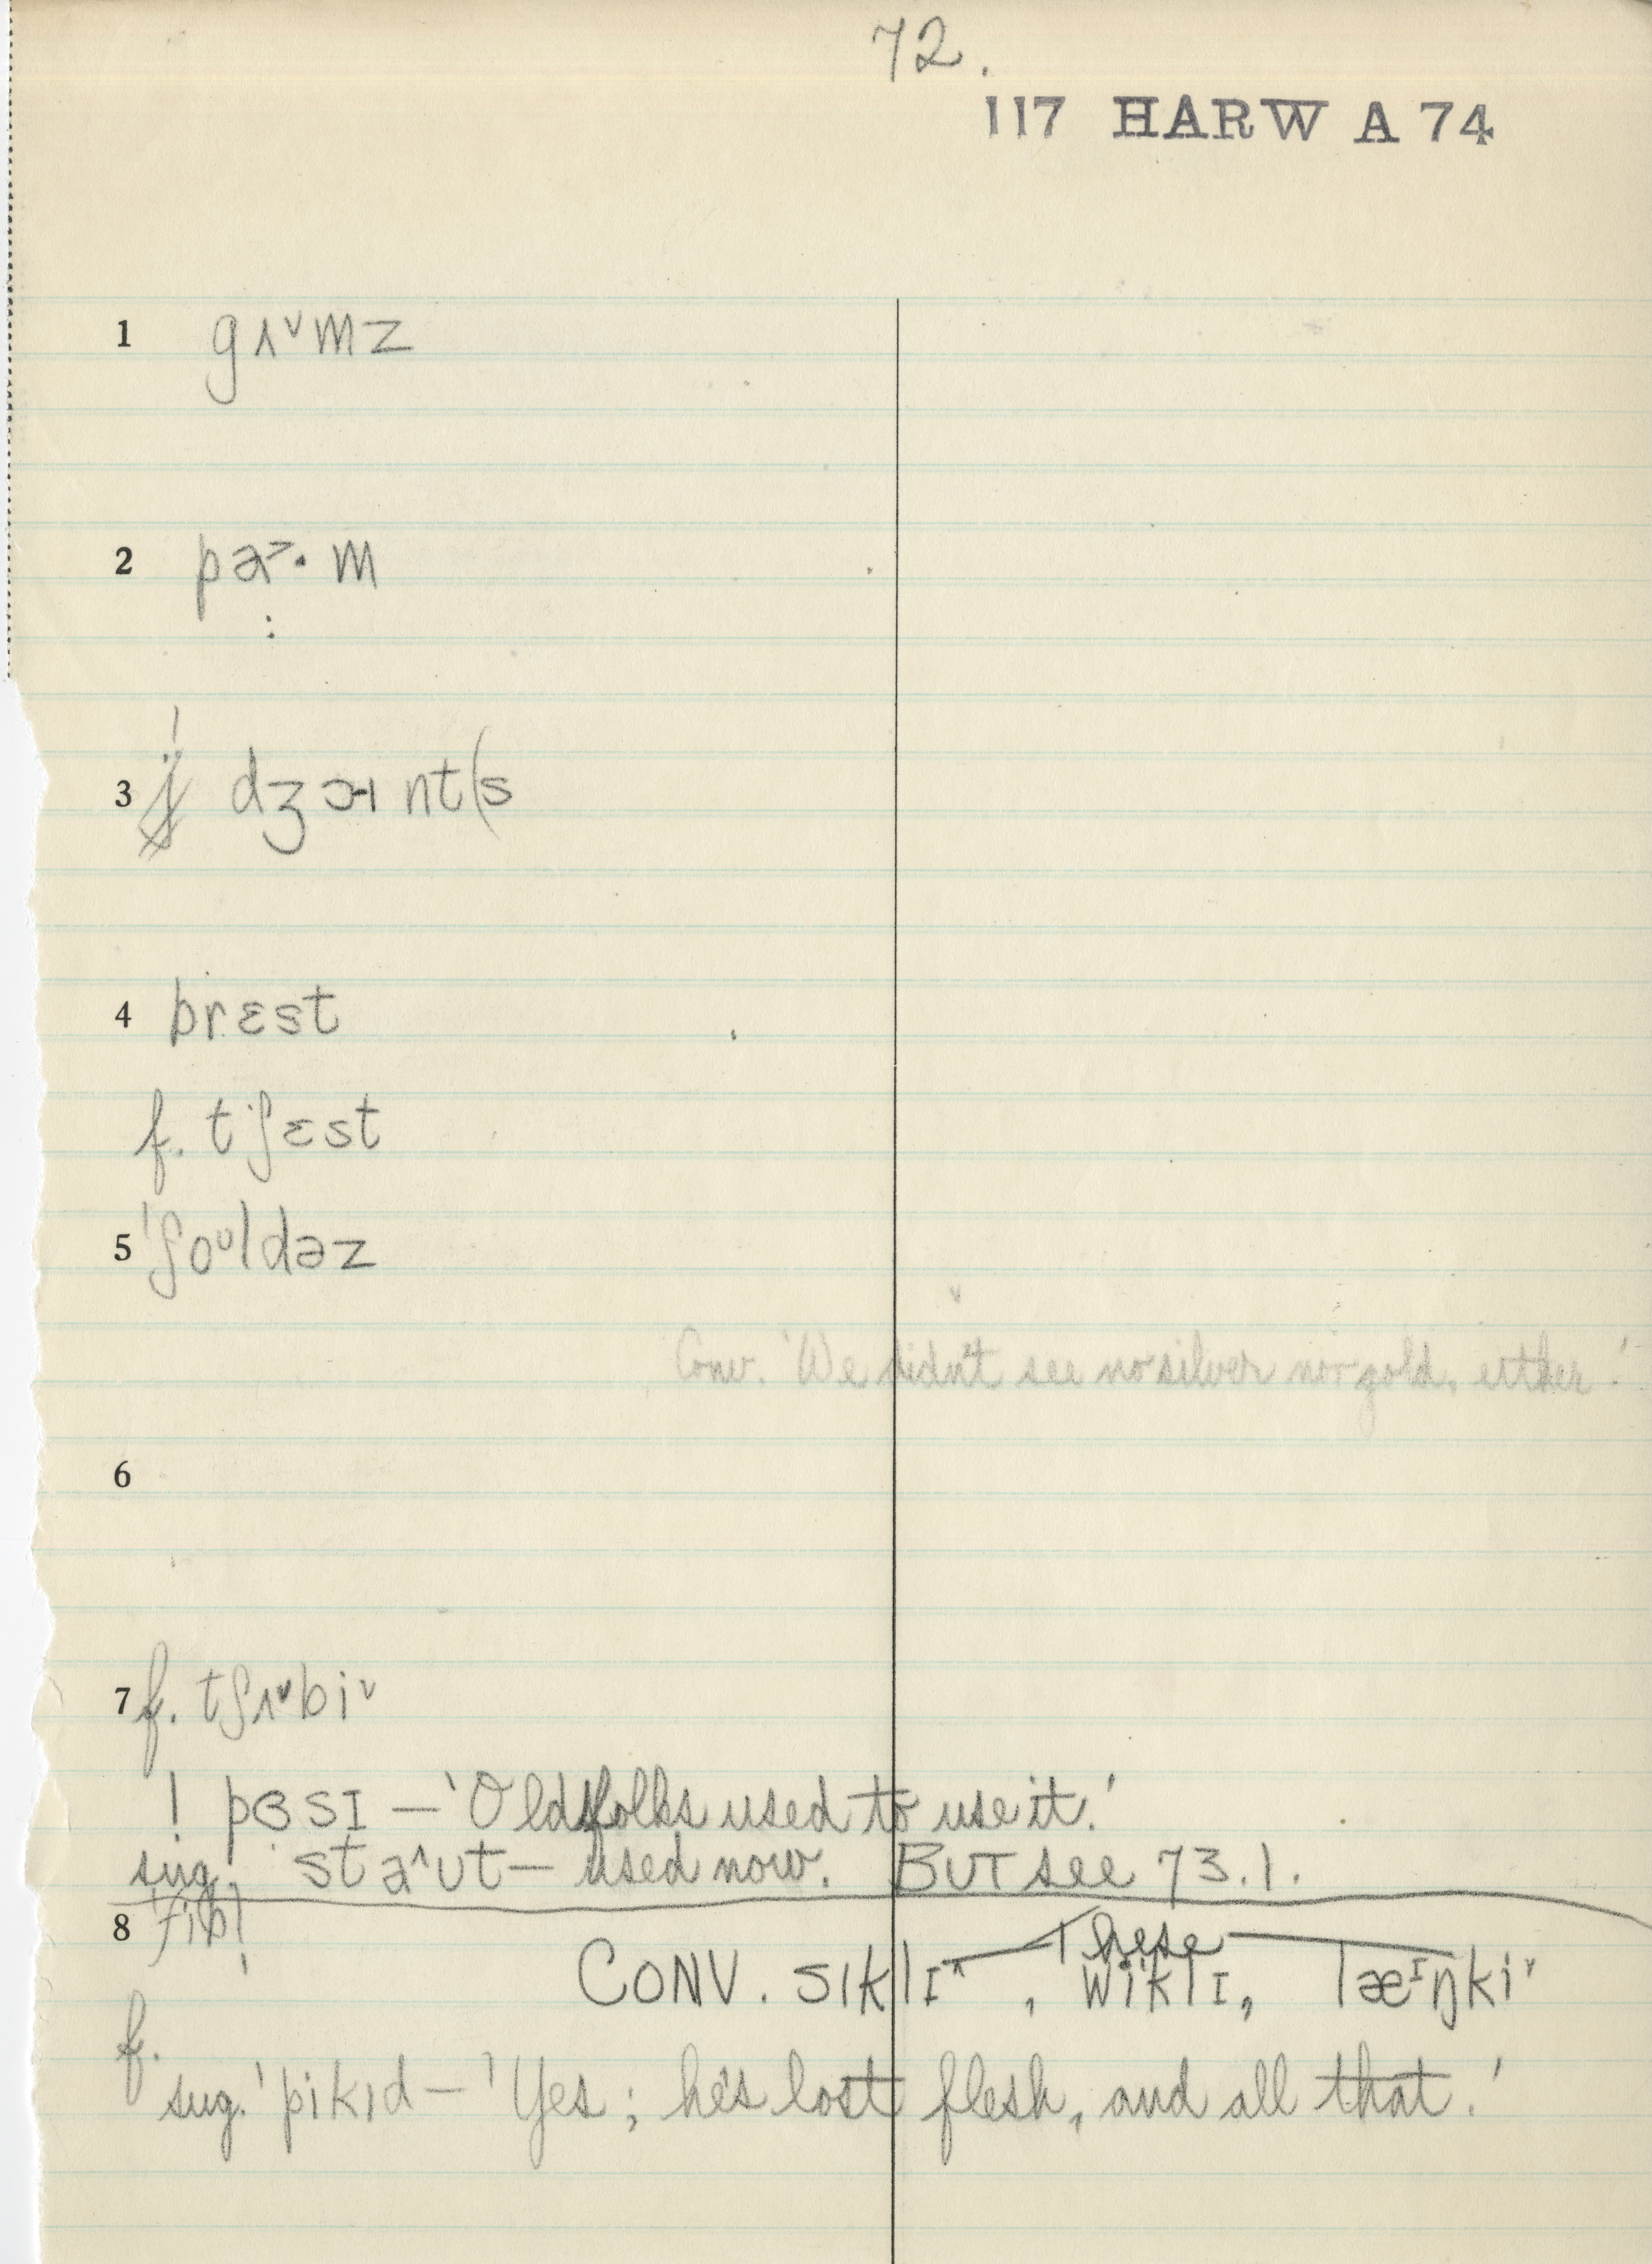 72.
117 HARW A 74
1 gʌˇmz
2 pɑ˃·m
3 dʒɔɪnt(s
4 brɛst
f. tʃɛst
5 ˈʃoᶷldəz
Conv. 'We didn't see no silver nor gold, either.'
6
7 f. tʃʌˇbiˇ
! pɜsɪ — 'Old folks used to use it.'
sug. ! staˆʊt — used now. BUT see 73.1.
8
These
CONV. sɪklɪˆ, wiklɪ, læᶦŋkiˇ
f.
sug. 'pikɪd — 'Yes; he's lost flesh, and all that.'